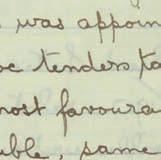 was appoin
oc tenders ta
most favoura
uble, same